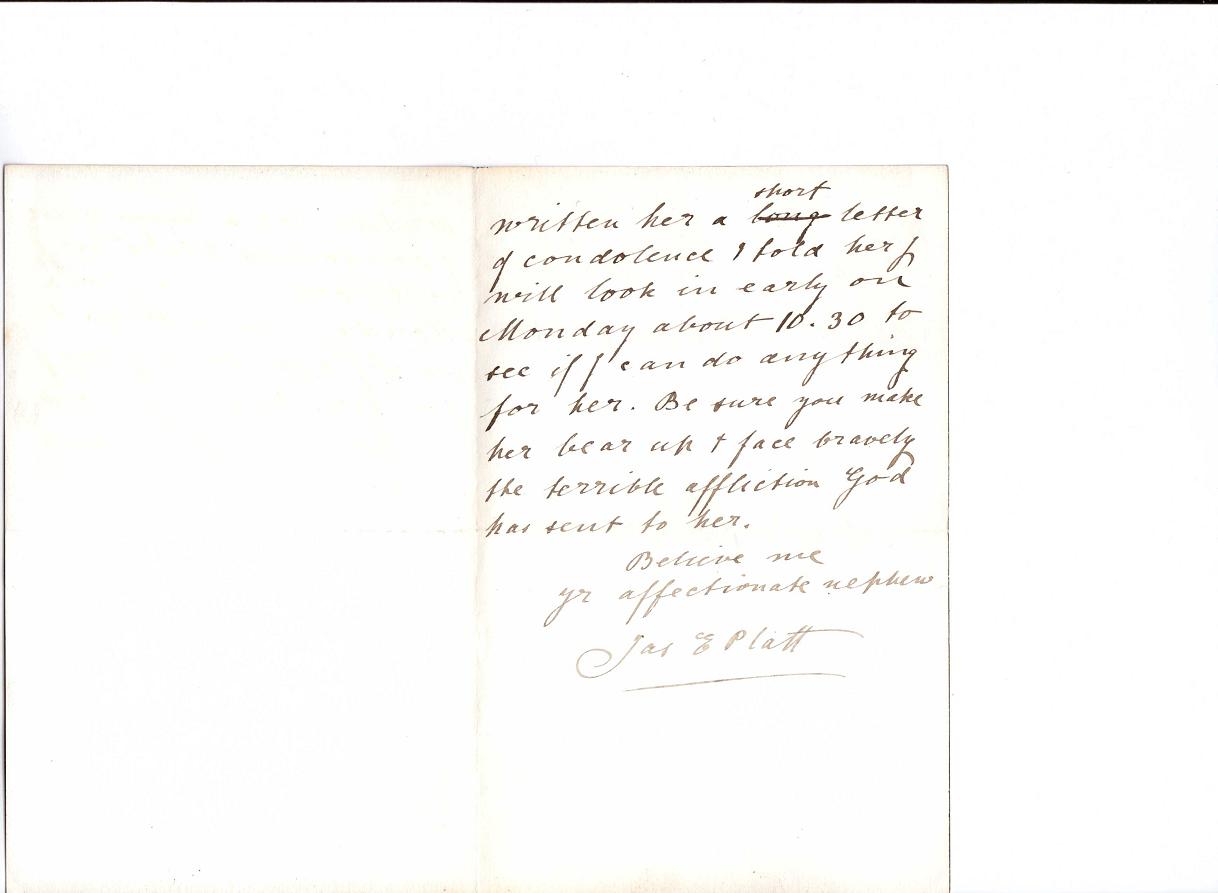 short
written her a long letter
of condolence I told her I
will look in early on
Monday about 10.30 to
see if I can do anything
for her. Be sure you make
her bear up & face bravely
the terrible affliction God
has sent to her.
Believe me
yr affectionate nephew
Jas E Platt